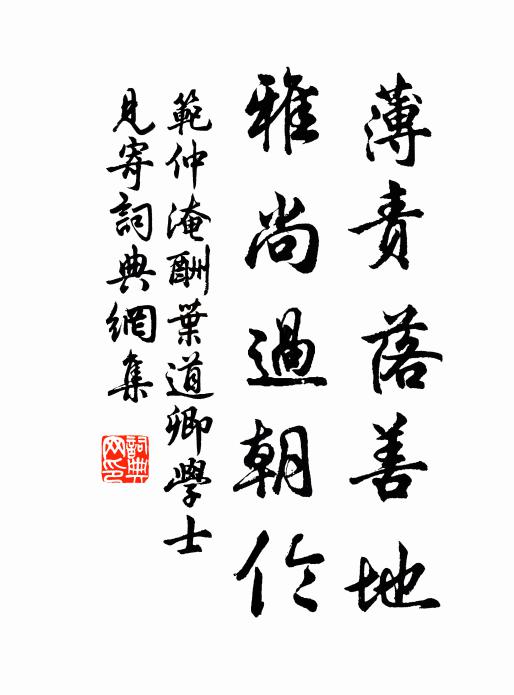 薄責落善地
雅尚過朝伶
範仲淹酬葉道卿學士
見寄詞典網集
詞典網印